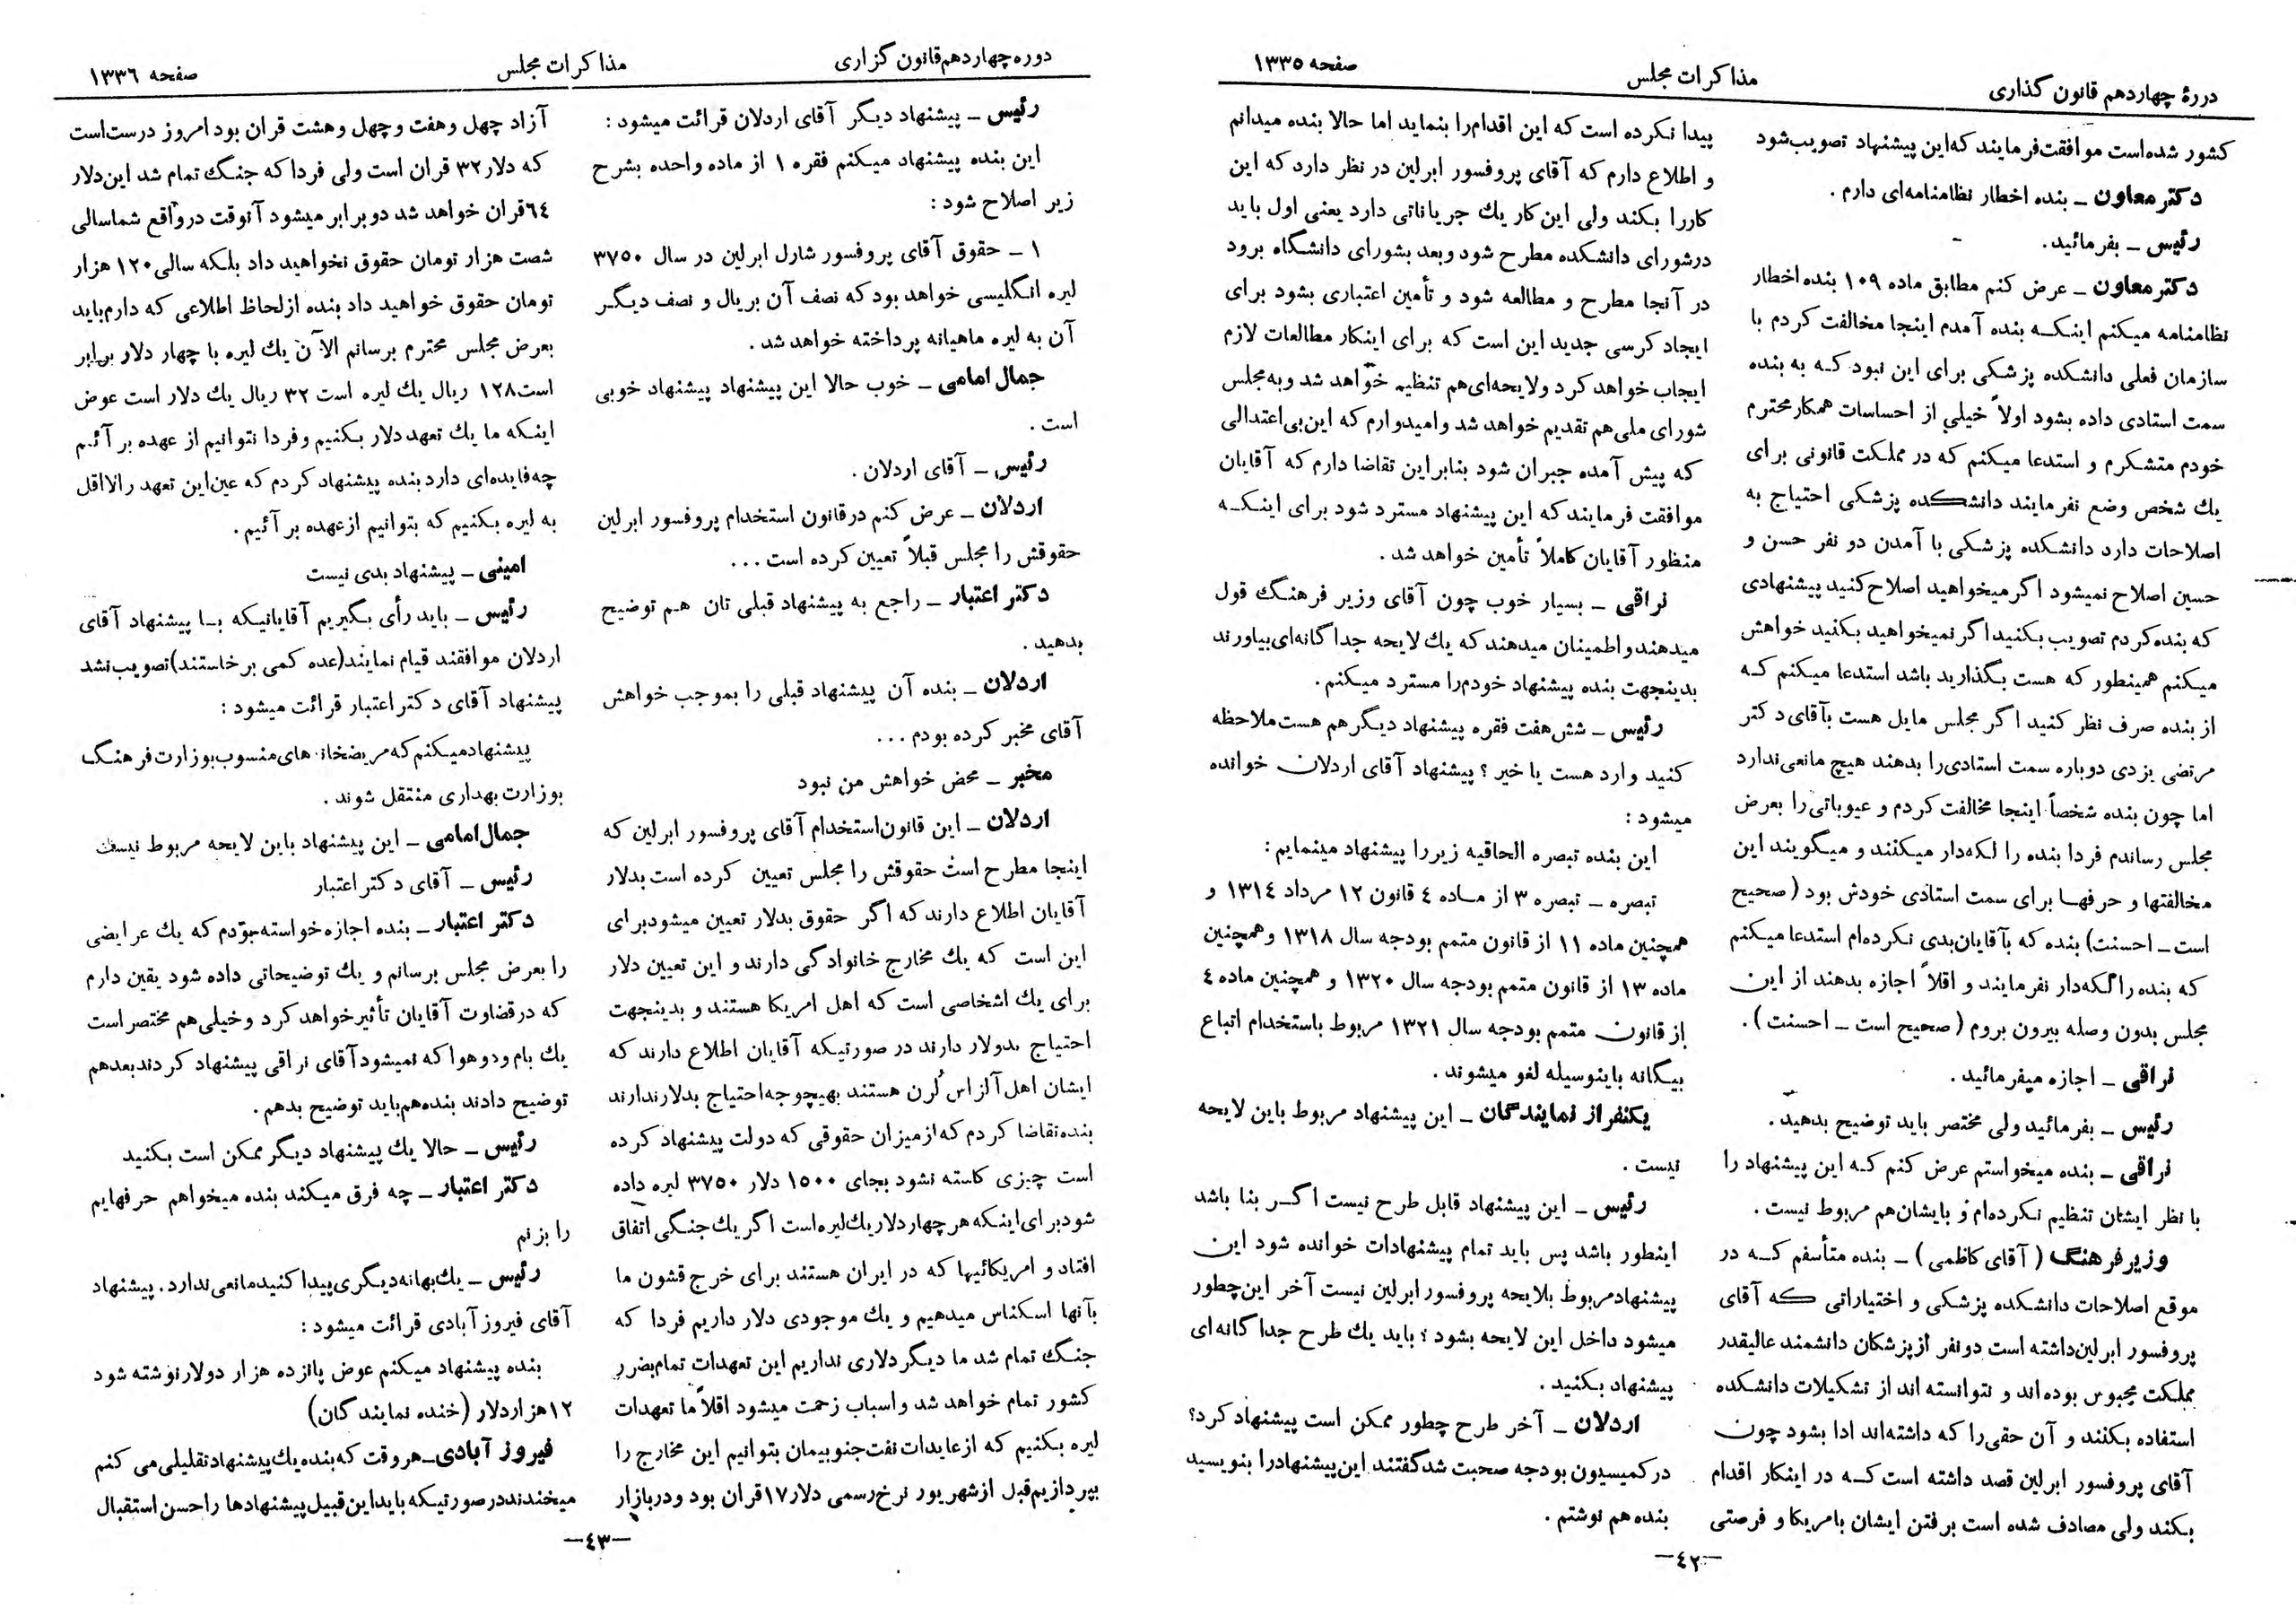 دورۀ چهاردهم قانون گذاری
مذاکرات مجلس
صفحه ۱۳۳۵
کشور شده‌است موافقت فرمایند که این پیشنهاد تصویب شود
دکتر معاون ـ بنده اخطار نظامنامه‌ای دارم .
رئیس ـ بفرمائید.
دکتر معاون ـ عرض کنم مطابق ماده ۱۰۹ بنده اخطار
نظامنامه میکنم اینکه بنده آمدم اینجا مخالفت کردم با
سازمان فعلی دانشکده پزشکی برای این نبود که به بنده
سمت استادی داده بشود اولاً خیلی از احساسات همکار محترم
خودم متشکرم و استدعا میکنم که در مملکت قانونی برای
یك شخص وضع نفرمایند دانشکده پزشکی احتیاج به
اصلاحات دارد دانشکده پزشکی با آمدن دو نفر حسن و
حسین اصلاح نمیشود اگر میخواهید اصلاح کنید پیشنهادی
که بنده کردم تصویب بکنید اگر نمیخواهید بکنید خواهش
میکنم همینطور که هست بگذارید باشد استدعا میکنم که
از بنده صرف نظر کنید اگر مجلس مایل هست بآقای دکتر
مرتضی یزدی دوباره سمت استادی را بدهند هیچ مانعی ندارد
اما چون بنده شخصاً اینجا مخالفت کردم و عیوباتی را بعرض
مجلس رساندم فردا بنده را لکه‌دار میکنند و میگویند این
مخالفتها و حرفها برای سمت استادی خودش بود ( صحیح
است ـ احسنت) بنده که بآقایان بدی نکرده‌ام استدعا میکنم
که بنده را لکه‌دار نفرمایند و اقلاً اجازه بدهند از این
مجلس بدون وصله بیرون بروم ( صحیح است ـ احسنت ) .
نراقی ـ اجازه میفرمائید .
رئیس ـ بفرمائید ولی مختصر باید توضیح بدهید .
نراقی ـ بنده میخواستم عرض کنم که این پیشنهاد را
با نظر ایشان تنظیم نکرده‌ام و بایشان هم مربوط نیست .
وزیر فرهنگ ( آقای کاظمی ) ـ بنده متأسفم که در
موقع اصلاحات دانشکده پزشکی و اختیاراتی که آقای
پروفسور ابرلین داشته است دو نفر از پزشکان دانشمند عالیقدر
مملکت محبوس بوده‌اند و نتوانسته اند از تشکیلات دانشکده
استفاده بکنند و آن حقی را که داشته‌اند ادا بشود چون
آقای پروفسور ابرلین قصد داشته است که در اینکار اقدام
بکند ولی مصادف شده است برفتن ایشان بامریکا و فرصتی
پیدا نکرده است که این اقدام را بنماید اما حالا بنده میدانم
و اطلاع دارم که آقای پروفسور ابرلین در نظر دارد که این
کار را بکند ولی این کار یك جریاناتی دارد یعنی اول باید
در شورای دانشکده مطرح شود و بعد بشورای دانشگاه برود
در آنجا مطرح و مطالعه شود و تأمین اعتباری بشود برای
ایجاد کرسی جدید این است که برای اینکار مطالعات لازم
ایجاب خواهد کرد و لایحه‌ای هم تنظیم خواهد شد و به مجلس
شورای ملی هم تقدیم خواهد شد و امیدوارم که این بی اعتدالی
که پیش آمده جبران شود بنابراین تقاضا دارم که آقایان
موافقت فرمایند که این پیشنهاد مسترد شود برای اینکه
منظور آقایان کاملاً تأمین خواهد شد .
نراقی ـ بسیار خوب چون آقای وزیر فرهنگ قول
میدهند و اطمینان میدهند که یك لایحه جداگانه‌ای بیاورند
بدینجهت بنده پیشنهاد خودم را مسترد میکنم .
رئیس ـ شش هفت فقره پیشنهاد دیگر هم هست ملاحظه
کنید وارد هست یا خیر ؟ پیشنهاد آقای اردلان خوانده
میشود :
این بنده تبصره الحاقیه زیر را پیشنهاد مینمایم :
تبصره ـ تبصره ۳ از ماده ٤ قانون ۱۲ مرداد ۱۳۱٤ و
همچنین ماده ۱۱ از قانون متمم بودجه سال ۱۳۱۸ و همچنین
ماده ۱۳ از قانون متمم بودجه سال ۱۳۲۰ و همچنین ماده ٤
از قانون متمم بودجه سال ۱۳۲۱ مربوط باستخدام اتباع
بیگانه باینوسیله لغو میشوند .
یکنفر از نمایندگان ـ این پیشنهاد مربوط باین لایحه
نیست .
رئیس ـ این پیشنهاد قابل طرح نیست اگر بنا باشد
اینطور باشد پس باید تمام پیشنهادات خوانده شود این
پیشنهاد مربوط بلایحه پروفسور ابرلین نیست آخر این چطور
میشود داخل این لایحه بشود ؟ باید یك طرح جداگانه‌ای
پیشنهاد بکنید .
اردلان ـ آخر طرح چطور ممکن است پیشنهاد کرد؟
در کمیسیون بودجه صحبت شد گفتند این پیشنهاد را بنویسید
بنده هم نوشتم .
ـ٤۲ـ
دوره چهاردهم قانون گزاری
مذاکرات مجلس
صفحه ۱۳۳٦
رئیس ـ پیشنهاد دیگر آقای اردلان قرائت میشود :
این بنده پیشنهاد میکنم فقره ۱ از ماده واحده بشرح
زیر اصلاح شود :
۱ ـ حقوق آقای پروفسور شارل ابرلین در سال ۳۷۵۰
لیره انگلیسی خواهد بود که نصف آن بریال و نصف دیگر
آن به لیره ماهیانه پرداخته خواهد شد .
جمال امامی ـ خوب حالا این پیشنهاد پیشنهاد خوبی
است .
رئیس ـ آقای اردلان .
اردلان ـ عرض کنم در قانون استخدام پروفسور ابرلین
حقوقش را مجلس قبلاً تعیین کرده است ...
دکتر اعتبار ـ راجع به پیشنهاد قبلی تان هم توضیح
بدهید .
اردلان ـ بنده آن پیشنهاد قبلی را بموجب خواهش
آقای مخبر کرده بودم ...
مخبر ـ محض خواهش من نبود
اردلان ـ این قانون استخدام آقای پروفسور ابرلین که
اینجا مطرح است حقوقش را مجلس تعیین کرده است بدلار
آقایان اطلاع دارند که اگر حقوق بدلار تعیین میشود برای
این است که یك مخارج خانوادگی دارند و این تعیین دلار
برای یك اشخاصی است که اهل امریکا هستند و بدینجهت
احتیاج بدولار دارند در صورتیکه آقایان اطلاع دارند که
ایشان اهل آلزاس لُرن هستند بهیچوجه احتیاج بدلار ندارند
بنده تقاضا کردم که از میزان حقوقی که دولت پیشنهاد کرده
است چیزی کاسته نشود بجای ۱۵۰۰ دلار ۳۷۵۰ لیره داده
شود برای اینکه هر چهار دلار یك لیره است اگر یك جنگی اتفاق
افتاد و امریکائیها که در ایران هستند برای خرج قشون ما
بآنها اسکناس میدهیم و یك موجودی دلار داریم فردا که
جنگ تمام شد ما دیگر دلاری نداریم این تعهدات تمام بضرر
کشور تمام خواهد شد و اسباب زحمت میشود اقلاً ما تعهدات
لیره بکنیم که از عایدات نفت جنوبیمان بتوانیم این مخارج را
بپردازیم قبل از شهریور نرخ رسمی دلار ۱۷ قران بود و در بازار
آزاد چهل و هفت و چهل و هشت قران بود امروز درست است
که دلار ۳۲ قران است ولی فردا که جنگ تمام شد این دلار
٦٤ قران خواهد شد دو برابر میشود آنوقت در واقع شما سالی
شصت هزار تومان حقوق نخواهید داد بلکه سالی ۱۲۰ هزار
تومان حقوق خواهید داد بنده از لحاظ اطلاعی که دارم باید
بعرض مجلس محترم برسانم الآن یك لیره با چهار دلار برابر
است ۱۲۸ ریال یك لیره است ۳۲ ریال یك دلار است عوض
اینکه ما یك تعهد دلار بکنیم و فردا نتوانیم از عهده بر آئیم
چه فایده‌ای دارد بنده پیشنهاد کردم که عین این تعهد را لااقل
به لیره بکنیم که بتوانیم از عهده بر آئیم .
امینی ـ پیشنهاد بدی نیست
رئیس ـ باید رأی بگیریم آقایانیکه با پیشنهاد آقای
اردلان موافقند قیام نمایند(عده کمی برخاستند)تصویب نشد
پیشنهاد آقای دکتر اعتبار قرائت میشود :
پیشنهاد میکنم که مریضخانه های منسوب بوزارت فرهنگ
بوزارت بهداری منتقل شوند .
جمال امامی ـ این پیشنهاد باین لایحه مربوط نیست
رئیس ـ آقای دکتر اعتبار
دکتر اعتبار ـ بنده اجازه خواسته بودم که یك عرایضی
را بعرض مجلس برسانم و یك توضیحاتی داده شود یقین دارم
که در قضاوت آقایان تأثیر خواهد کرد و خیلی هم مختصر است
یك بام و دو هوا که نمیشود آقای نراقی پیشنهاد کردند بعد هم
توضیح دادند بنده هم باید توضیح بدهم .
رئیس ـ حالا یك پیشنهاد دیگر ممکن است بکنید
دکتر اعتبار ـ چه فرق میکند بنده میخواهم حرفهایم
را بزنم
رئیس ـ یك بهانه دیگری پیدا کنید مانعی ندارد . پیشنهاد
آقای فیروزآبادی قرائت میشود :
بنده پیشنهاد میکنم عوض پانزده هزار دولار نوشته شود
۱۲ هزار دلار (خنده نمایندگان)
فیروز آبادی ـ هر وقت که بنده یك پیشنهاد تقلیلی می کنم
میخندند در صورتیکه باید این قبیل پیشنهادها را حسن استقبال
ـ٤۳ـ